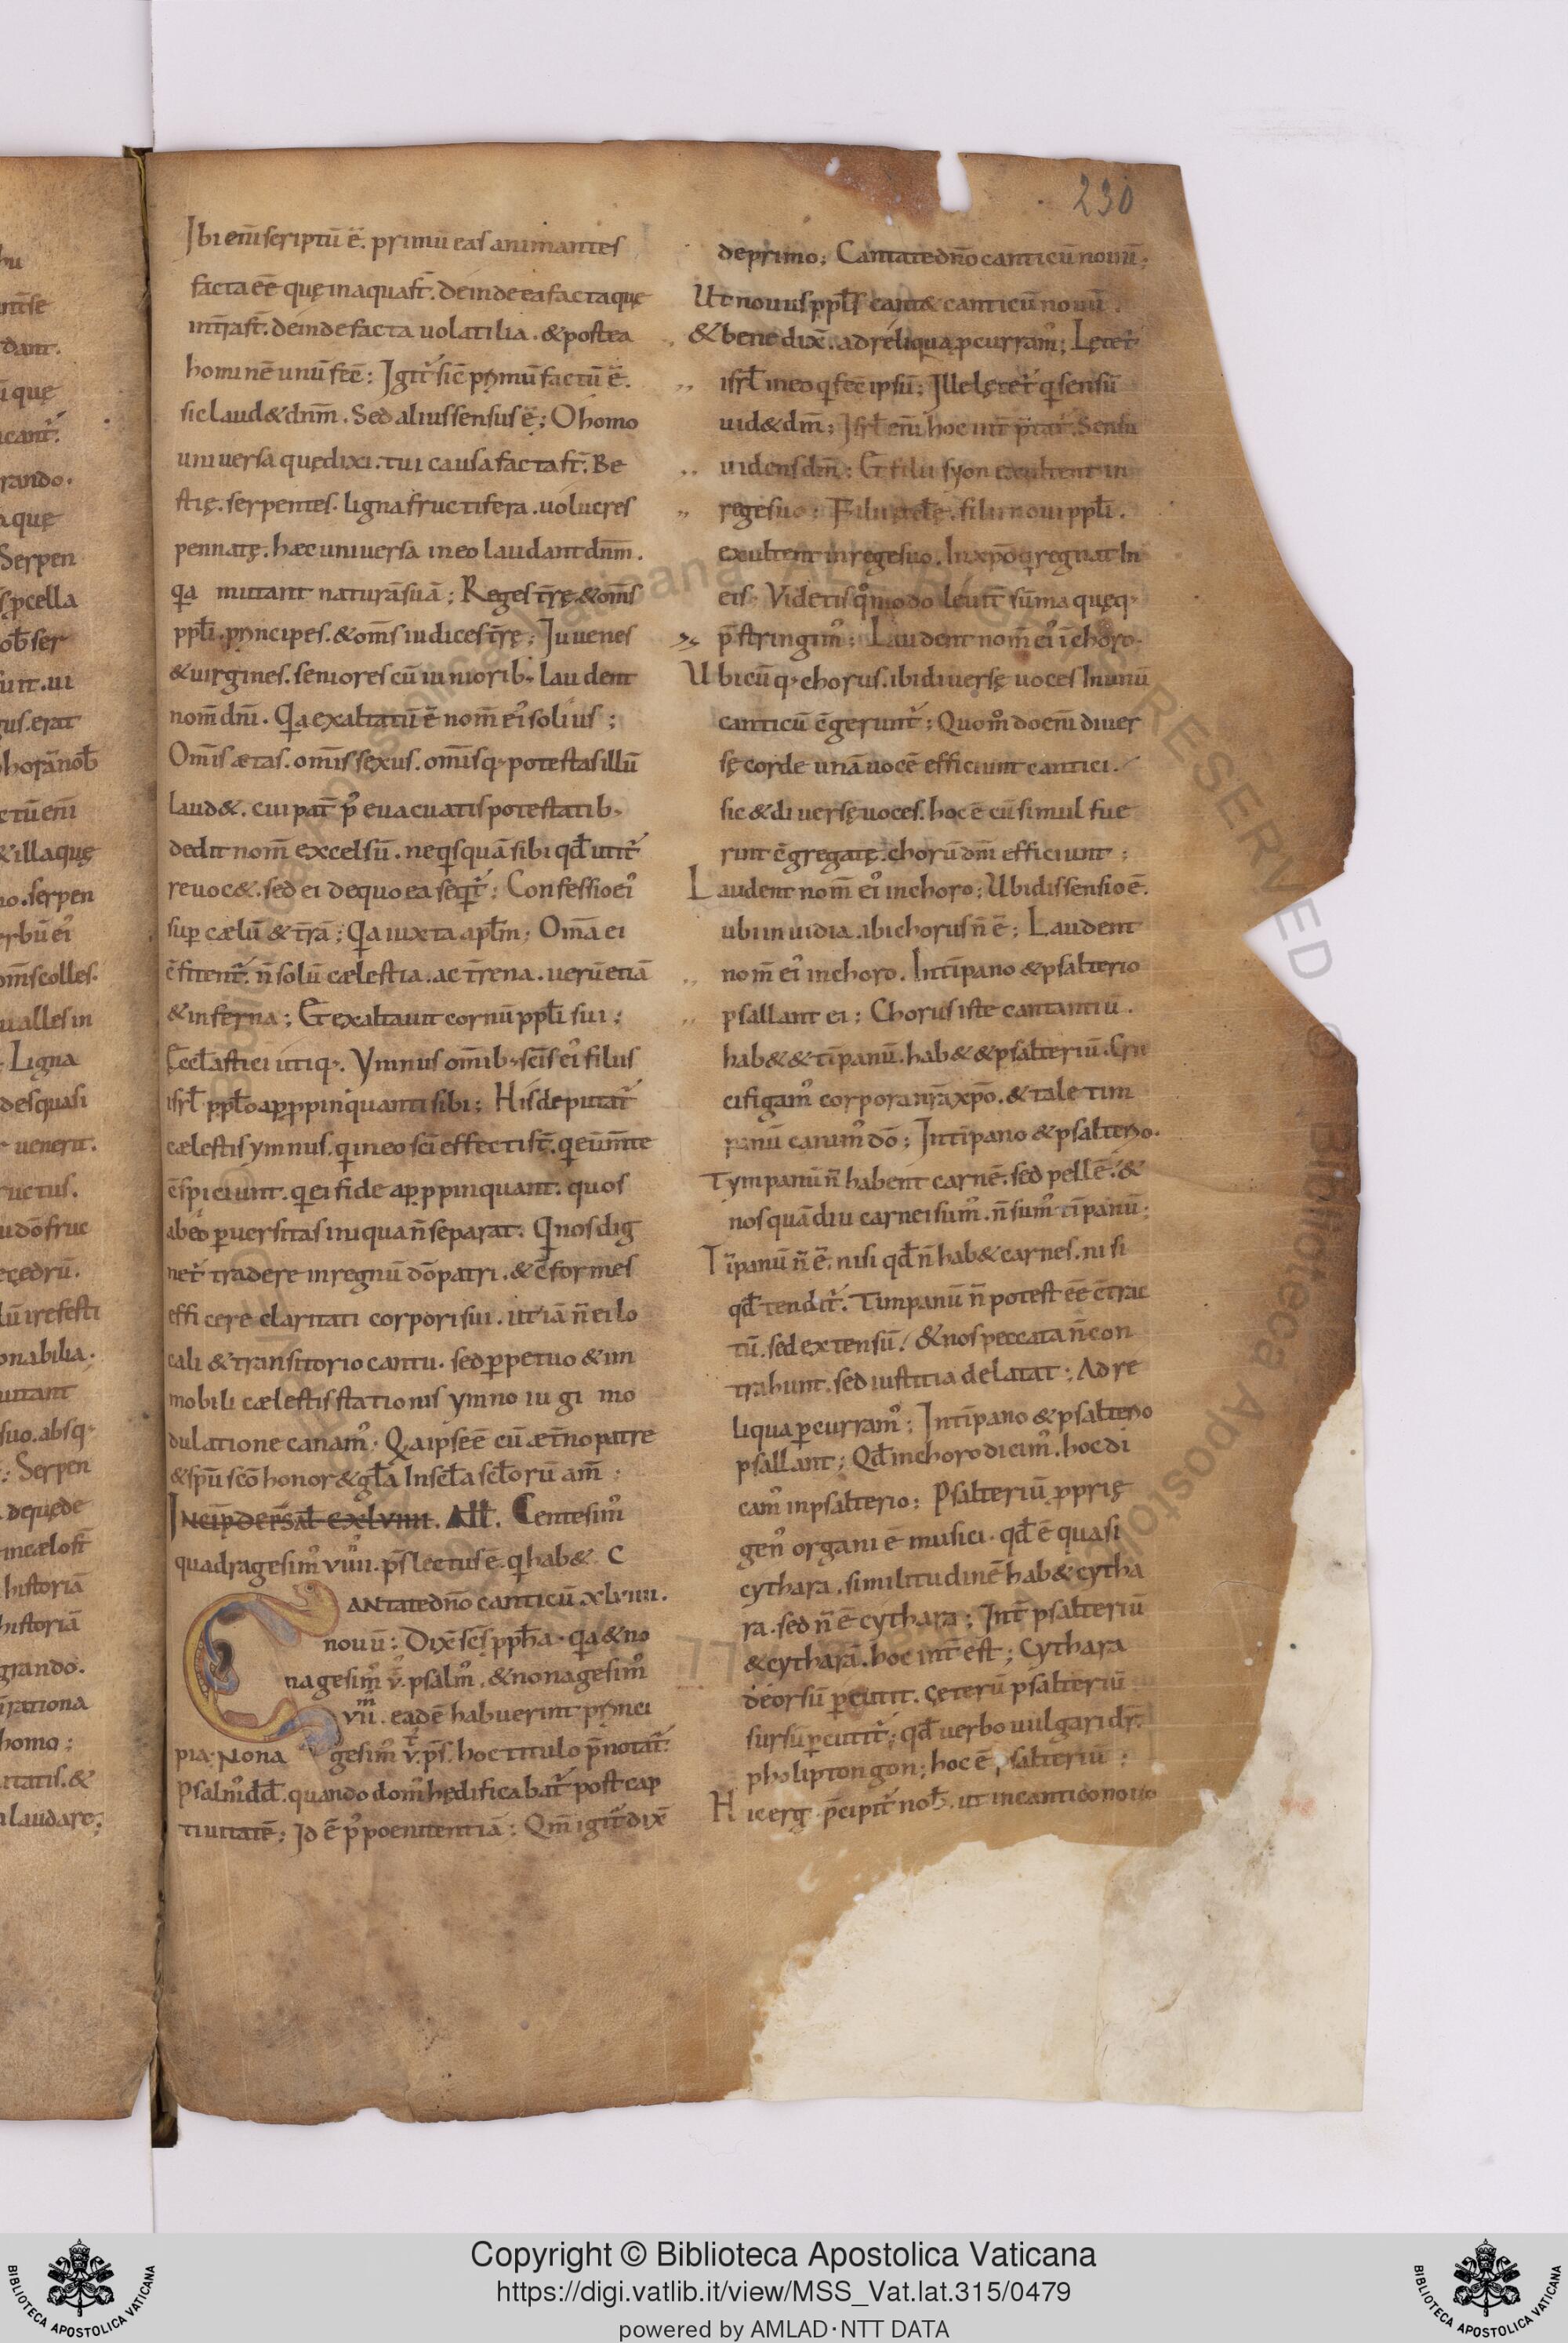 230
Ibi eni scriptū ē. primū eas animantes
facta eē quę in aqua st̄. deinde ea facta quę
in tr̄a st̄. deinde facta uolatilia. & postea
hominē unū fcē; Igit̄ sic primū factū ē.
sic laud& dn̄m. Sed alius sensus ē; O homo
uniuersa quę dixi. tui causa facta st̄. Be
stię. serpentes. ligna fructifera. uolucres
pennatę. hæc uniuersa in eo laudant dn̄m.
qa mutant naturā suā; Reges tr̄ę. & om̄s
ppl̄i. principes. & om̄s iudices tr̄ę; Iuuenes
& uirgines. seniores cū iuniorib; laudent
nom̄ dn̄i. Qa exaltatū ē nom̄ ei' solius;
Om̄is ætas. om̄is sexus. om̄isq; potestas illū
laud&. cui pat̄ p' euacuatis potestatib;
dedit nom̄ excelsū. neqsquā sibi qd̄ utit̄
reuoc&. sed ei de quo ea seqt̄; Confessio ei'
sup cælū & tr̄ā; Qa iuxta apl̄m; Om̄a ei
c̄fitent̄. n̄ solū cælestia. ac tr̄rena. uerū etiā
& inferna; Et exaltauit cornū ppl̄i sui;
Eccl̄astici utiq;. Ymnus om̄ib; sc̄is ei' filius
isrl̄ ppl̄o appropinquanti sibi; His deputat̄
cælestis ymnus. qi in eo sc̄i effecti st̄. q eū m̄te
c̄spiciunt. q ei fide appropinquant. quos
ab eo puersitas iniqua n̄ separat. Q nos dig
net̄ tradere in regnū dō patri. & c̄formes
efficere claritati corporis sui. ut iā n̄ ei lo
cali & transitorio cantu. sed ppetuo & im
mobili cælestis stationis ymno iugi mo
dulatione canam'. Qa ipse ē cū æt̄no patre
& sp̄u sc̄o honor & gl̄a In scl̄a scl̄orū am̄;
INCIP DE PSAL CXLVIIII. All. Centesim'
quadragesim' viiii. ps̄ lectus ē. q hab& C
ANtate dn̄o canticū xlviiii.
nouū; Dix̄ sc̄s pph̄a. qa & no
nagesim' v' psalm'. & nonagesim'
vii. eadē habuerint princi
pia. Nona gesim' v. ps̄. hoc titulo p̄notat̄.
Psalm' dd̄. quando dom' hedificabat̄ post cap
tiuitatē; Id ē p' poenitentiā; Qm̄ igit̄ dix̄
de primo; Cantate dn̄o canticū nouū;
Ut nouus ppl̄s cant& canticū nouū.
& benedix̄. ad reliqua pcurram'; Lętet̄
isrl̄ in eo q fecē ipsū; Ille lętet̄ q sensū
uid& dm̄; Isrl̄ eni hoc
uidens dm̄; Et filii syon exultent in
rege suo; Filii filii noui ppl̄i.
exultent in rege suo. In xpō q regnat In
eis. Videtis qm̄odo leuit̄ sūma quęq;
p̄stringim'; Laudent nom̄ ei' ī choro.
Ubicūq; chorus. ibi diuersę uoces In unū
canticū c̄gerunt̄; Quom' do eni diuer
sę corde unā uocē efficiunt cantici.
sic & diuersę uoces. hoc ē cū simul fue
rint c̄gregatę. chorū dn̄i efficiunt;
Laudent nom̄ ei' in choro; Ubi dissensio ē.
ubi inuidia. ibi chorus n̄ ē; Laudent
nom̄ ei' in choro. In tīpano & psalterio
psallant ei; Chorus iste cantantiū.
hab& & tīpanū. hab& & psalteriū. Cru
cifigam' corpora nr̄a xpō. & tale tim
panū canim' dō; In tīpano & psalterio.
Tympanū n̄ habent carnē. sed pellē. &
nos quādiu carnei sum'. n̄ sum' tīpanū;
Tīpanū n̄ ē. nisi qd̄ n̄ hab& carnes. nisi
qd̄ tendit̄. Timpanū n̄ potest eē c̄trac
tū. sed extensū. & nos peccata n̄ con
trahunt. sed iustitia delatat; Ad re
liqua pcurram'; In tīpano & psalterio
psallant; Qd̄ in choro dicim'. hoc di
cam' in psalterio; Psalteriū pprię
gen' organi ē musici. qd̄ ē quasi
cythara. similitudinē hab& cytha
ra. sed n̄ ē cythara; Int̄ psalteriū
& cytharā. hoc int̄est; Cythara
deorsū pcutit. ceterū psalteriū
sursū pcutit̄; qd̄ uerbo uulgari dr̄.
pholiptongon; hoc ē psalteriū;
Hic erg p̄cipit̄ nob̄. ut in cantico nouo
Copyright © Biblioteca Apostolica Vaticana
https://digi.vatlib.it/view/MSS_Vat.lat.315/0479
powered by AMLAD·NTT DATA
BIBLIOTECA APOSTOLICA VATICANA
BIBLIOTECA APOSTOLICA VATICANA